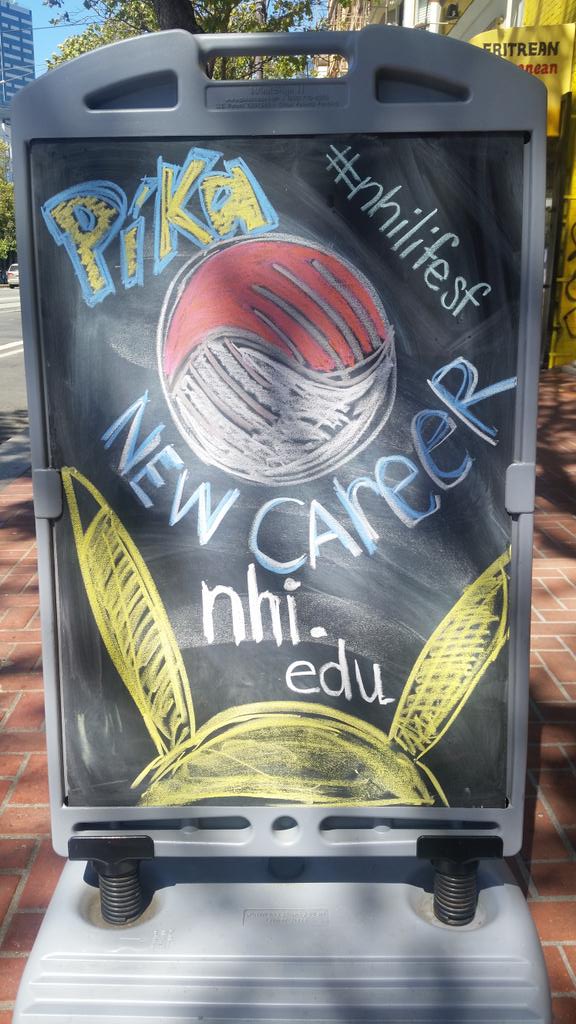 PiKa
#nhilifesf
NEW CAREER
nhi.
edu
ERITREAN